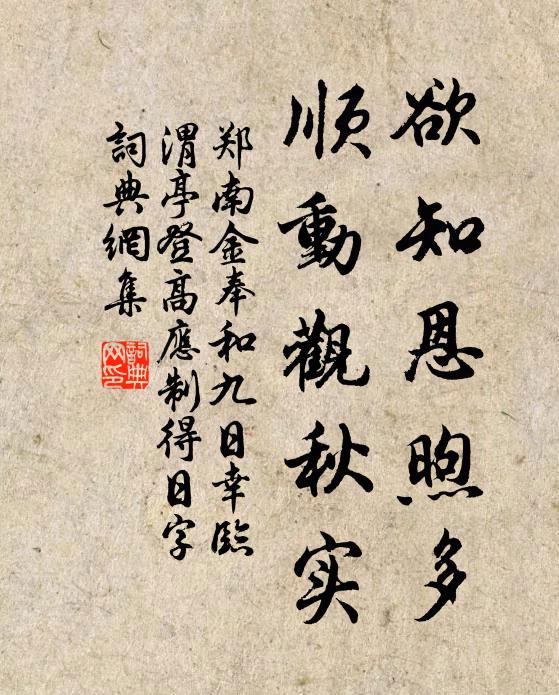 欲知恩煦多
順動觀秋实
郑南金奉和九日幸臨
渭亭登高應制得日字
詞典網集
詞典网印